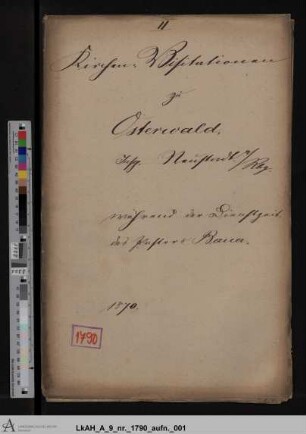 11
Kirchen-Visitationen
zu
Osterwald.
Insp. Neustadt a/Rbg.
während der Dienstzeit
des Pastors
1870.
1790
LkAH_A_9_nr._1790_aufn._001